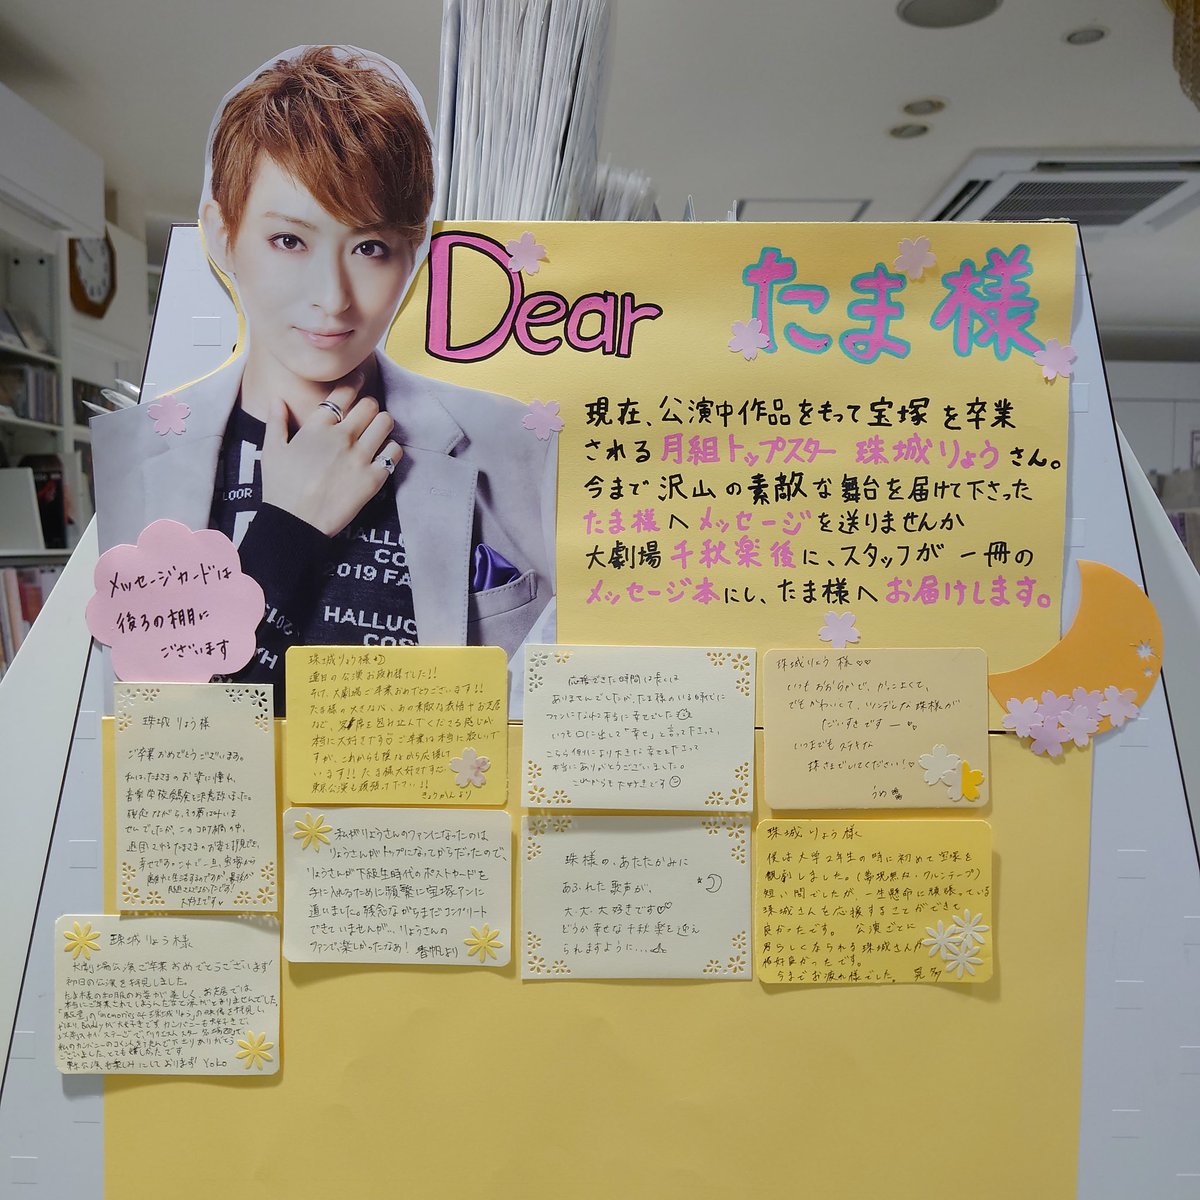 Dear たま様
現在、公演中作品をもって宝塚を卒業
される月組トップスター 珠城りょうさん。
今まで沢山の素敵な舞台を届けて下さった
たま様へメッセージを送りませんか
大劇場千秋楽後に、スタッフが一冊の
メッセージ本にし、たま様へお届けします。
メッセージカードは
後ろの棚に
ございます
HALLUC
COS
2019 FA
珠城りょう様
連日の公演お疲れ様でした!!
そして、大劇場ご卒業おめでとうございます!!
本当に大好きです♡ご卒業は本当に寂しいで
すが、これからも
います!! たま様大好きです
東京公演も頑張って下さい!!
きょうかんより
応援できた時間は長くは
ありませんでしたが、たま様のいる時代に
ファンになれて本当に幸せでした
いつも口に出して「幸せ」と言って下さって、
こちら側により大きな幸せを下さって
本当にありがとうございました。
これからも大好きです
珠城りょう様♡♡
いつもおおらかで、かっこよくて、
でもかわいくて、ツンデレな珠様が
だいすきですー
いつまでもステキな
珠さまでしてください!♡
うめ
珠城りょう様
ご卒業おめでとうございます。
私はたまさまのお姿に憧れ、
音楽学校受験を決意しました。
残念ながら、その夢は叶いま
せんでしたが、
大好きです♡
私がりょうさんのファンになったのは、
りょうさんがトップになってからだったので、
りょうさんが下級生時代のポストカードを
手に入れるために頻繁に宝塚アンに
通いました。残念ながらまだコンプリート
できていませんが…、りょうさんの
ファンで楽しかったなあ! 香帆より
珠様の、あたたかみに
あふれた歌声が、
大・大・大好きです♡♡
どうか幸せな千秋楽を迎え
られますように…
珠城りょう様
僕は大学2年生の時に初めて宝塚を
観劇しました。(夢現無双・クルンテープ)
短い間でしたが、一生懸命に頑張っている
珠城さんを応援することができて
良かったです。 公演ごとに
男らしくなられる珠城さんが
格好良かったです。
今までお疲れ様でした。
珠城りょう様
大劇場公演ご卒業おめでとうございます!
初日の公演を拝見しました。
たま様の和服のお姿が美しく、お芝居では
本当にご卒業されてしまうんだなと涙が止まりませんでした。
東京公演も楽しみにしております! Yoko